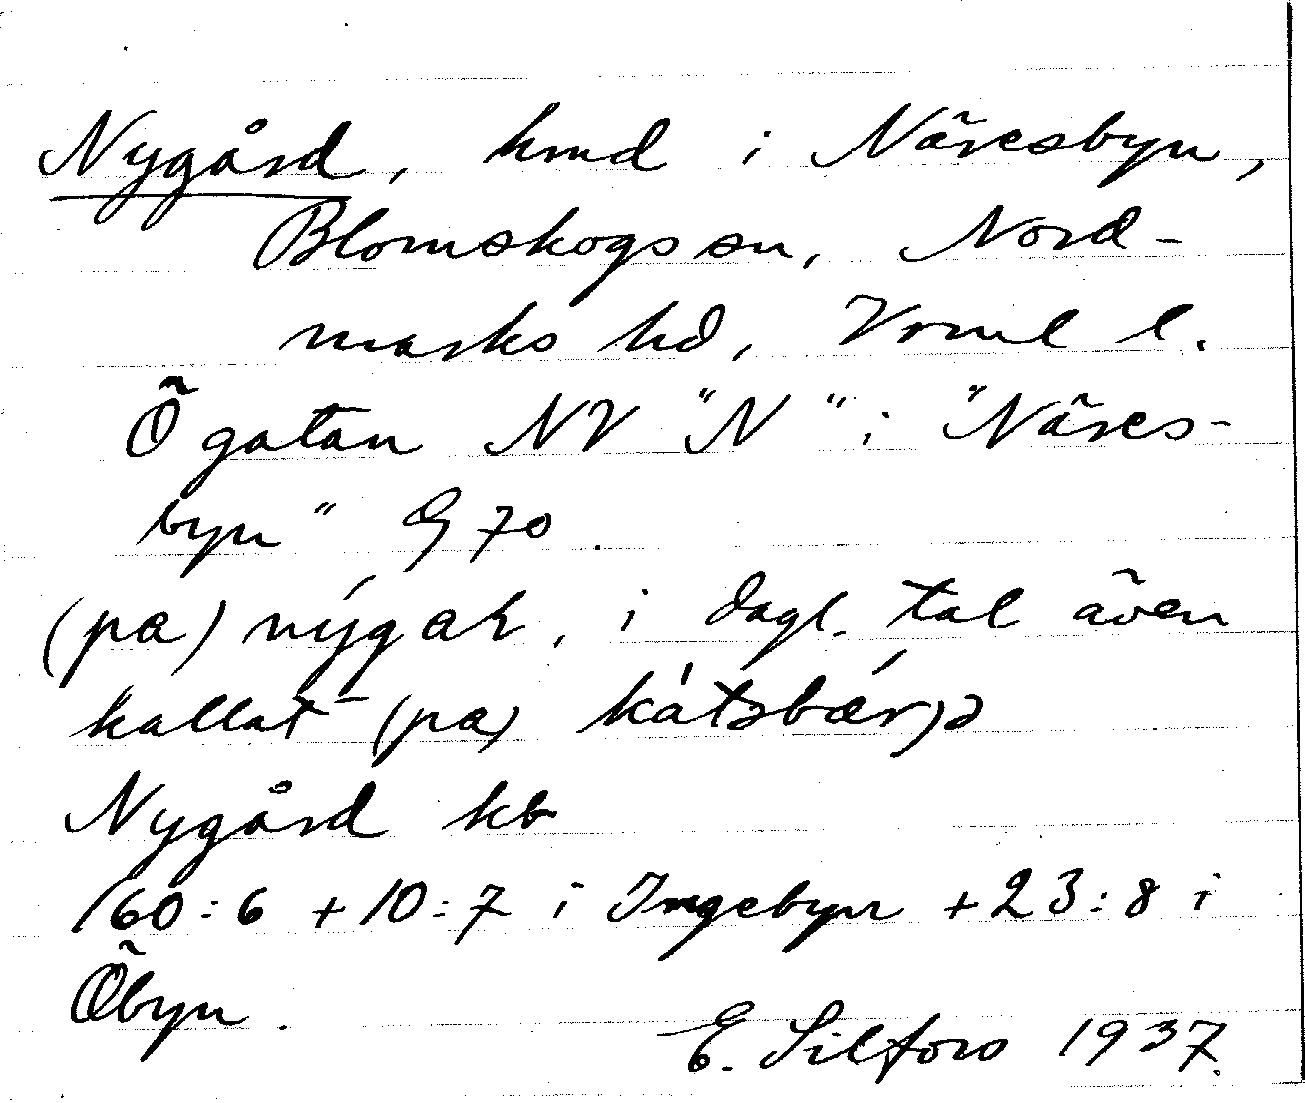 Nygård, hmd i Näresbyn,
Blomskogs sn, Nord-
marks hd, Vrml l.
Ögatan NV "N" i "Näres-
byn" G 70.
(pa) nýgaʀ, i dagl. tal även
kallat (pa) kátsbǽrjə
Nygård kb
160:6 + 10:7 i Ingebyn + 23:8 i
Öbyn.
E. Silfors 1937.